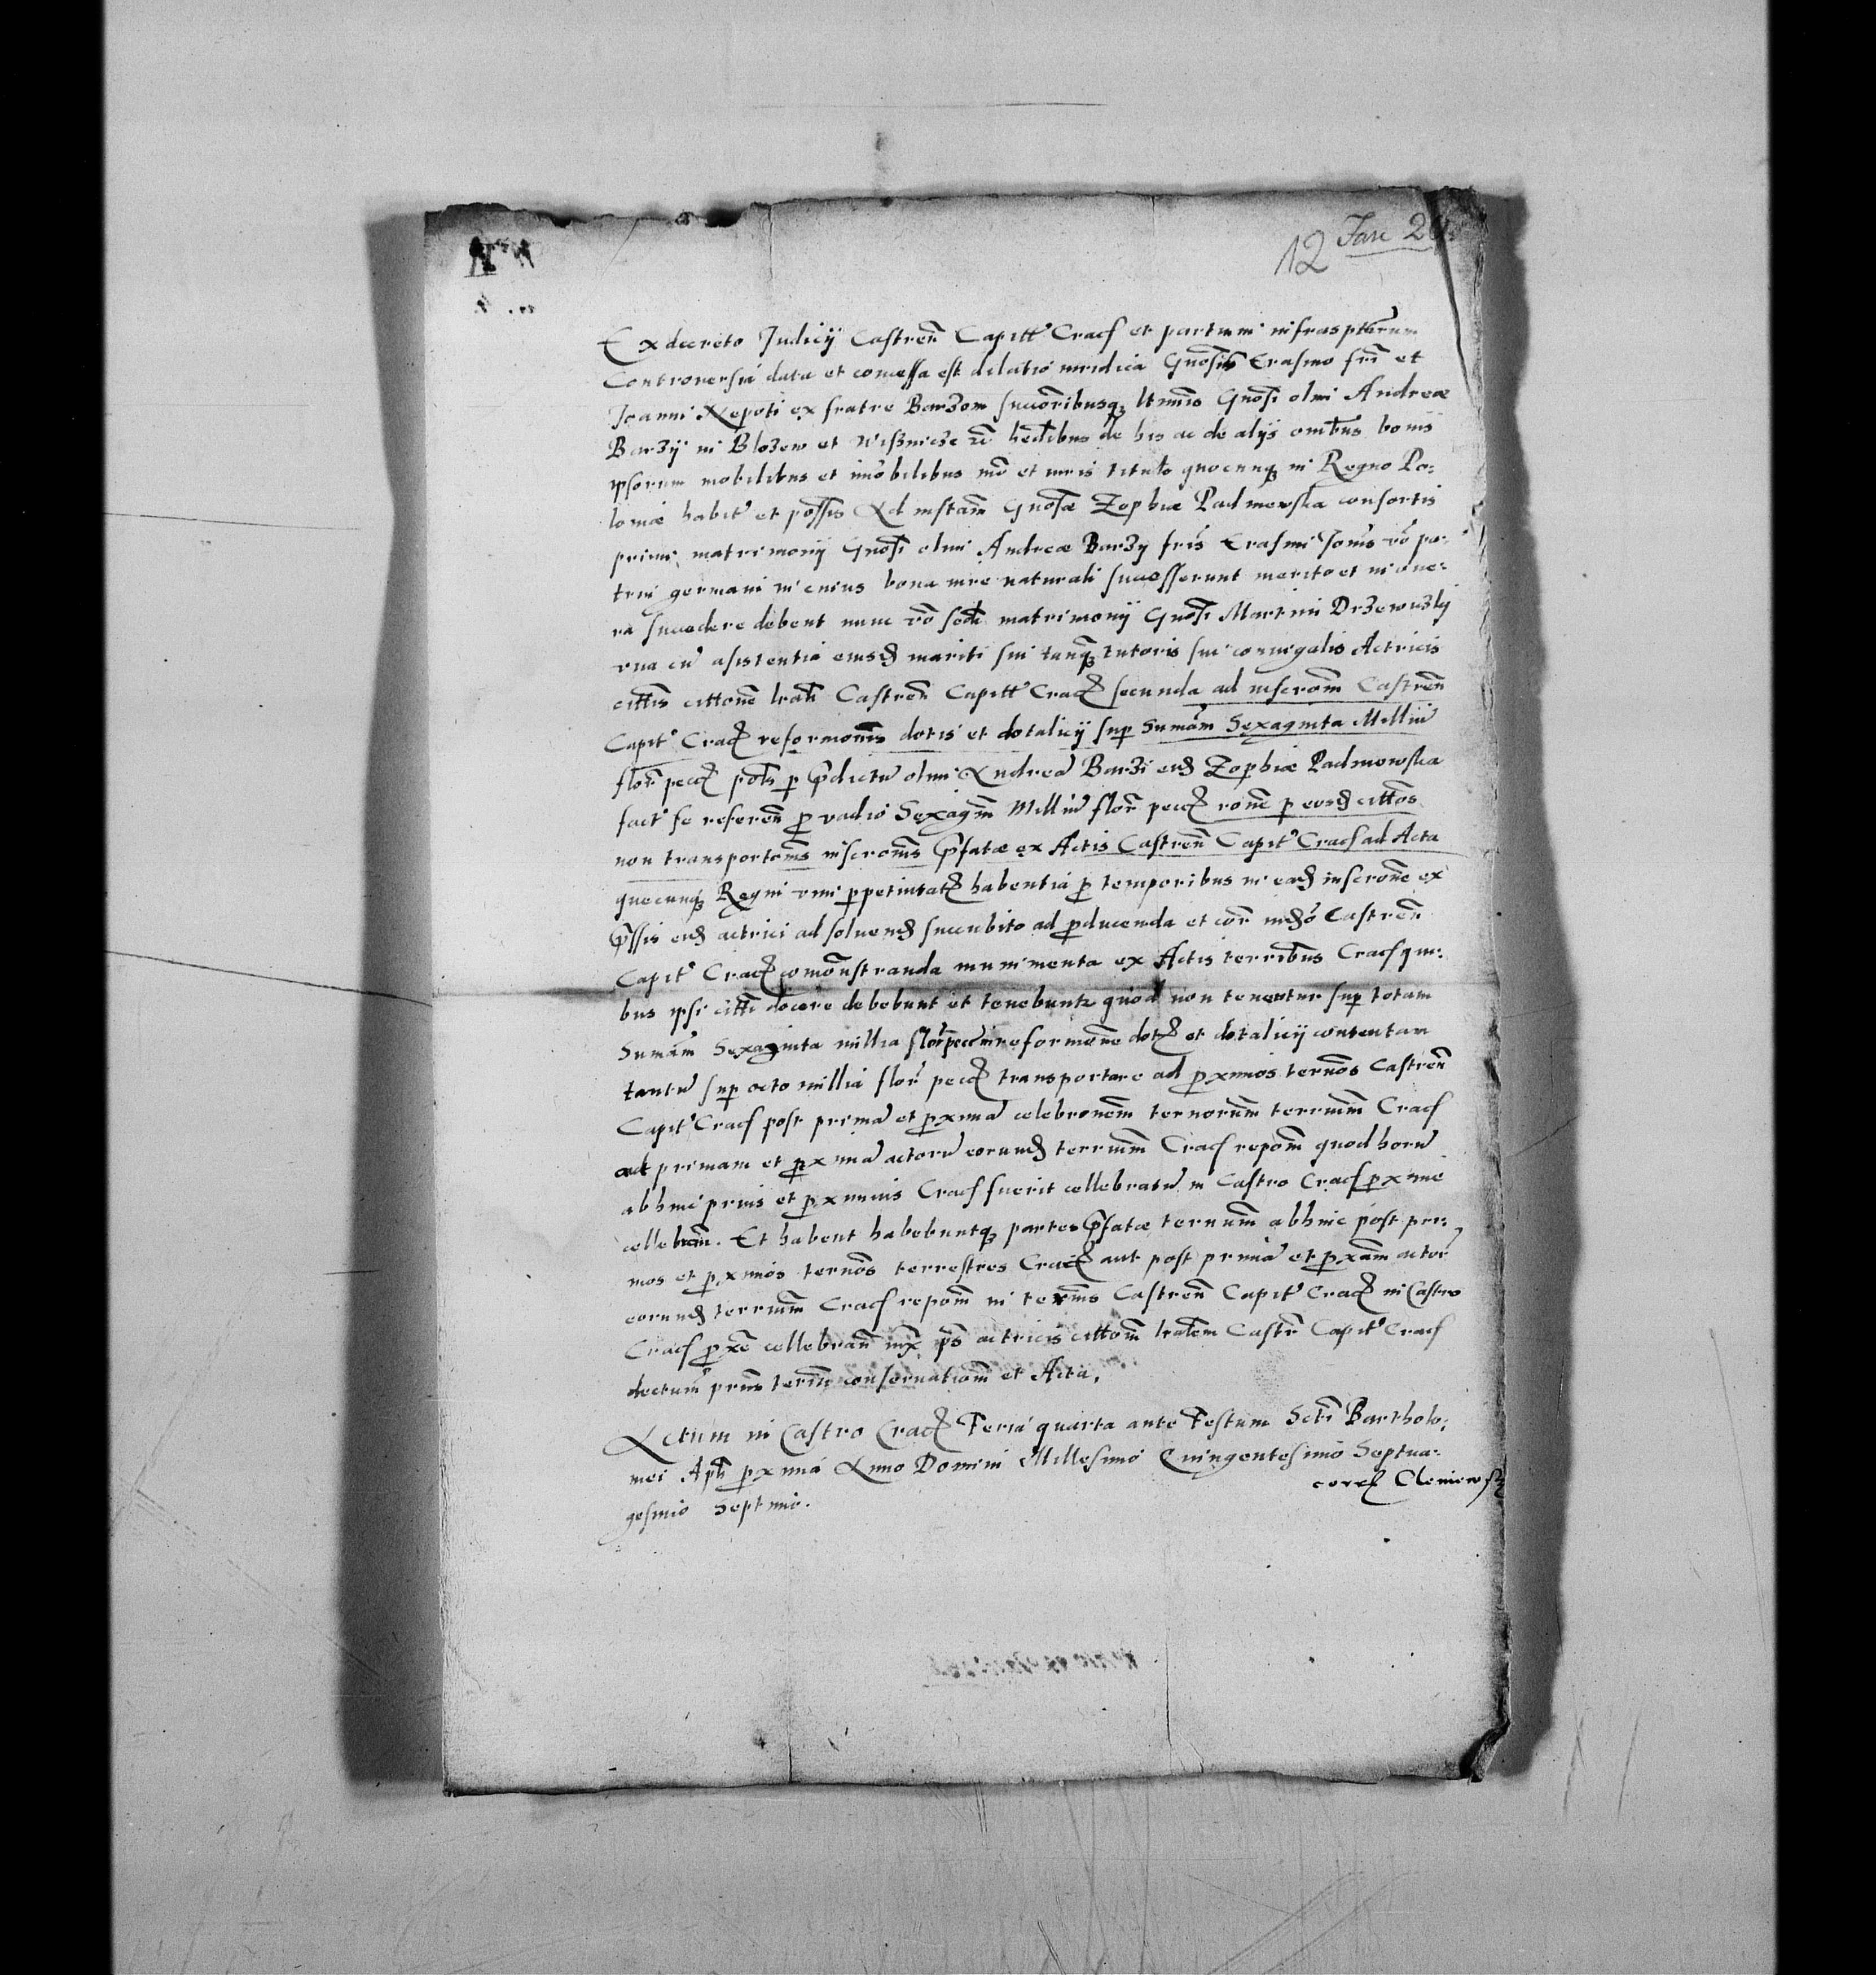 12 Jan 24
Ex decreto Judicij Castreñ Capitt Crac et partium infrasptarum
Controversia data et concessa est dilatio iuridica Gnosis Erasmo fri et
Joanni Nepoti ex fratre Barzom succoribusq ltimis Gnosi olim Andreæ
Barzij in Blozew et Wisznicze hedibus de his ac de alijs omibus bonis
ipsorum mobilibus et imobilibus mõ et iuris titulo quocunq in Regno Po:
loniæ habit et possis Ad instam Gnosæ Zophiæ Padniewska consortis
primi matrimonij Gnosi olim Andreæ Barzy fris Erasmi Jonis vo pa:
trui germani in cuius bona iure naturali successerunt merito et in one:
ra succedere debent nunc vo scdi matrimonij Gnosi Martini Drzewiczky
vna cu asistentia eiusd mariti sui tanq tutoris sui coniugalis Actricis
cittis cittone lrali Castreñ Capitt Crac secunda ad inscrom Castreñ
Capit Crac reformonis dotis et dotalicij sup Sumam Sexaginta Milliu
flor pecc polis p pdictu olim Andrea Barzi eid Zophiæ Padniowska
fact se refereñ p vadio Sexagin Milliu flor pecc rone p eosd cittos
non transportonis inscronis pfatæ ex Actis Castreñ Capit Crac ad Acta
quecunq Regni vim ppetuitatis habentia p temporibus in ead inscrone ex
pssis eid actrici ad soluend succubito ad pducenda et cor iudo Castreñ
Capit Crac comonstranda munimenta ex Actis terribus Crac qui:
bus ipsi citti docere debebunt et tenebuntr quod non tenentur sup totam
Sumam Sexaginta millia flor pecc in reformone dotis et dotalicij contentam
tantu sup octo millia flor pecc transportare ad pximos ternos Castreñ
Capit Crac post prima et pxima celebronem ternorum terrium Crac
aut primam et pxima actoru eorund terrium Crac repom quod horu
abhinc primis et pximis Crac fuerit cellebratu in Castro Crac pxime
cellebran. Et habent habebuntq partes pfatæ ternum abhinc post pri:
mos et pximos ternos terrestres Crac aut post prima et pxam actor
eorund terrium Crac repom in ternis Castreñ Capit Crac in Castro
Crac pxe cellebran iux pns actricis cittom lralem Castr Capit Crac
dectum prius ternu conseruatiom et Acta.
Actum in Castro Crac Feria quarta ante Festum Scti Bartholo:
mei Apli pxima Anno Domini Millesimo Quingentesimo Septua:
gesimo Septimo.
corr Cleniewsk